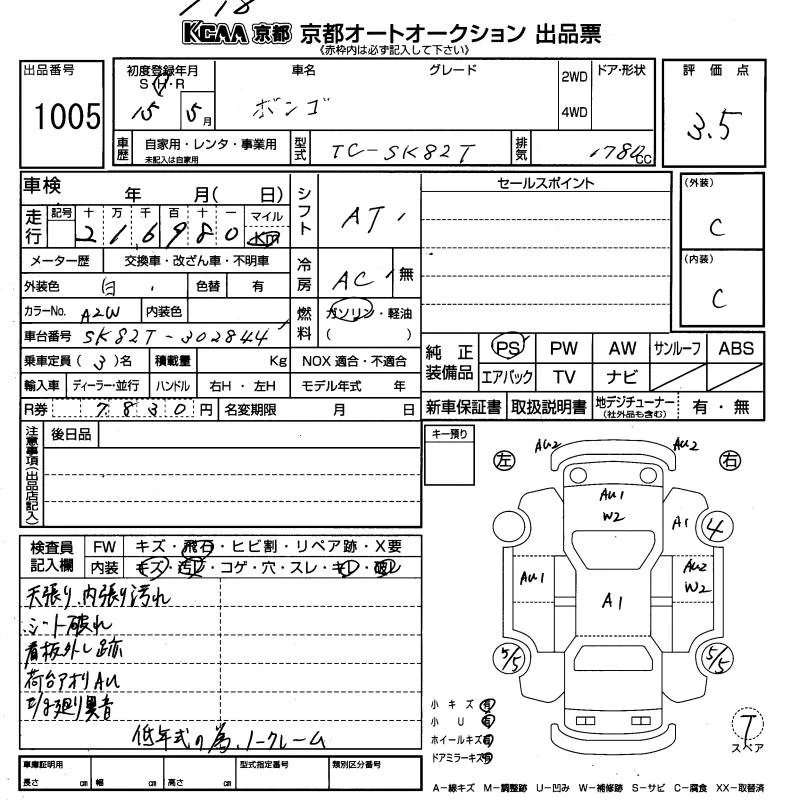 118
KCAA 京都 京都オートオークション 出品票
《赤枠内は必ず記入して下さい》
出品番号
1005
初度登録年月
S・H・R
15 5月
車名
ボンゴ
グレード
2WD
4WD
ドア・形状
評価点
3.5
車歴
自家用・レンタ・事業用
未記入は自家用
型式
TC-SK82T
排気
1780cc
車検 年 月( 日)
走行
記号 十 万 千 百 十 一 マイル
2 1 6 9 8 0 km
メーター歴 交換車・改ざん車・不明車
外装色 白 色替 有
カラーNo. A2W 内装色
車台番号 SK82T-302844
乗車定員 ( 3 )名 積載量 Kg
輸入車 ディーラー・並行 ハンドル 右H・左H
R券 7830円 名変期限 月 日
シフト AT
冷房 AC 無
燃料 ガソリン・軽油
( )
NOX 適合・不適合
モデル年式 年
セールスポイント
(外装)
C
(内装)
C
純正装備品
PS PW AW サンルーフ ABS
エアバック TV ナビ
新車保証書 取扱説明書 地デジチューナー
(社外品も含む)
有・無
注意事項(出品店記入)
後日品
キー預り
検査員記入欄
FW キズ・飛石・ヒビ割・リペア跡・X要
内装 キズ・汚レ・コゲ・穴・スレ・キレ・破レ
天張り、内張り汚れ
シート破れ
看板外し跡
荷台アオリAU
エンジン廻り異音
低年式の為、ノークレーム
左 右
AU2 AU2
AU1
W2
A1 4
AU1
AU2
W2
A1
5/5 5/5
小キズ有
小U有
ホイールキズ有
ドアミラーキズ有
T
スペア
車庫証明用
長さ cm 幅 cm 高さ cm
型式指定番号
類別区分番号
A-線キズ M-調整跡 U-凹み W-補修跡 S-サビ C-腐食 XX-取替済